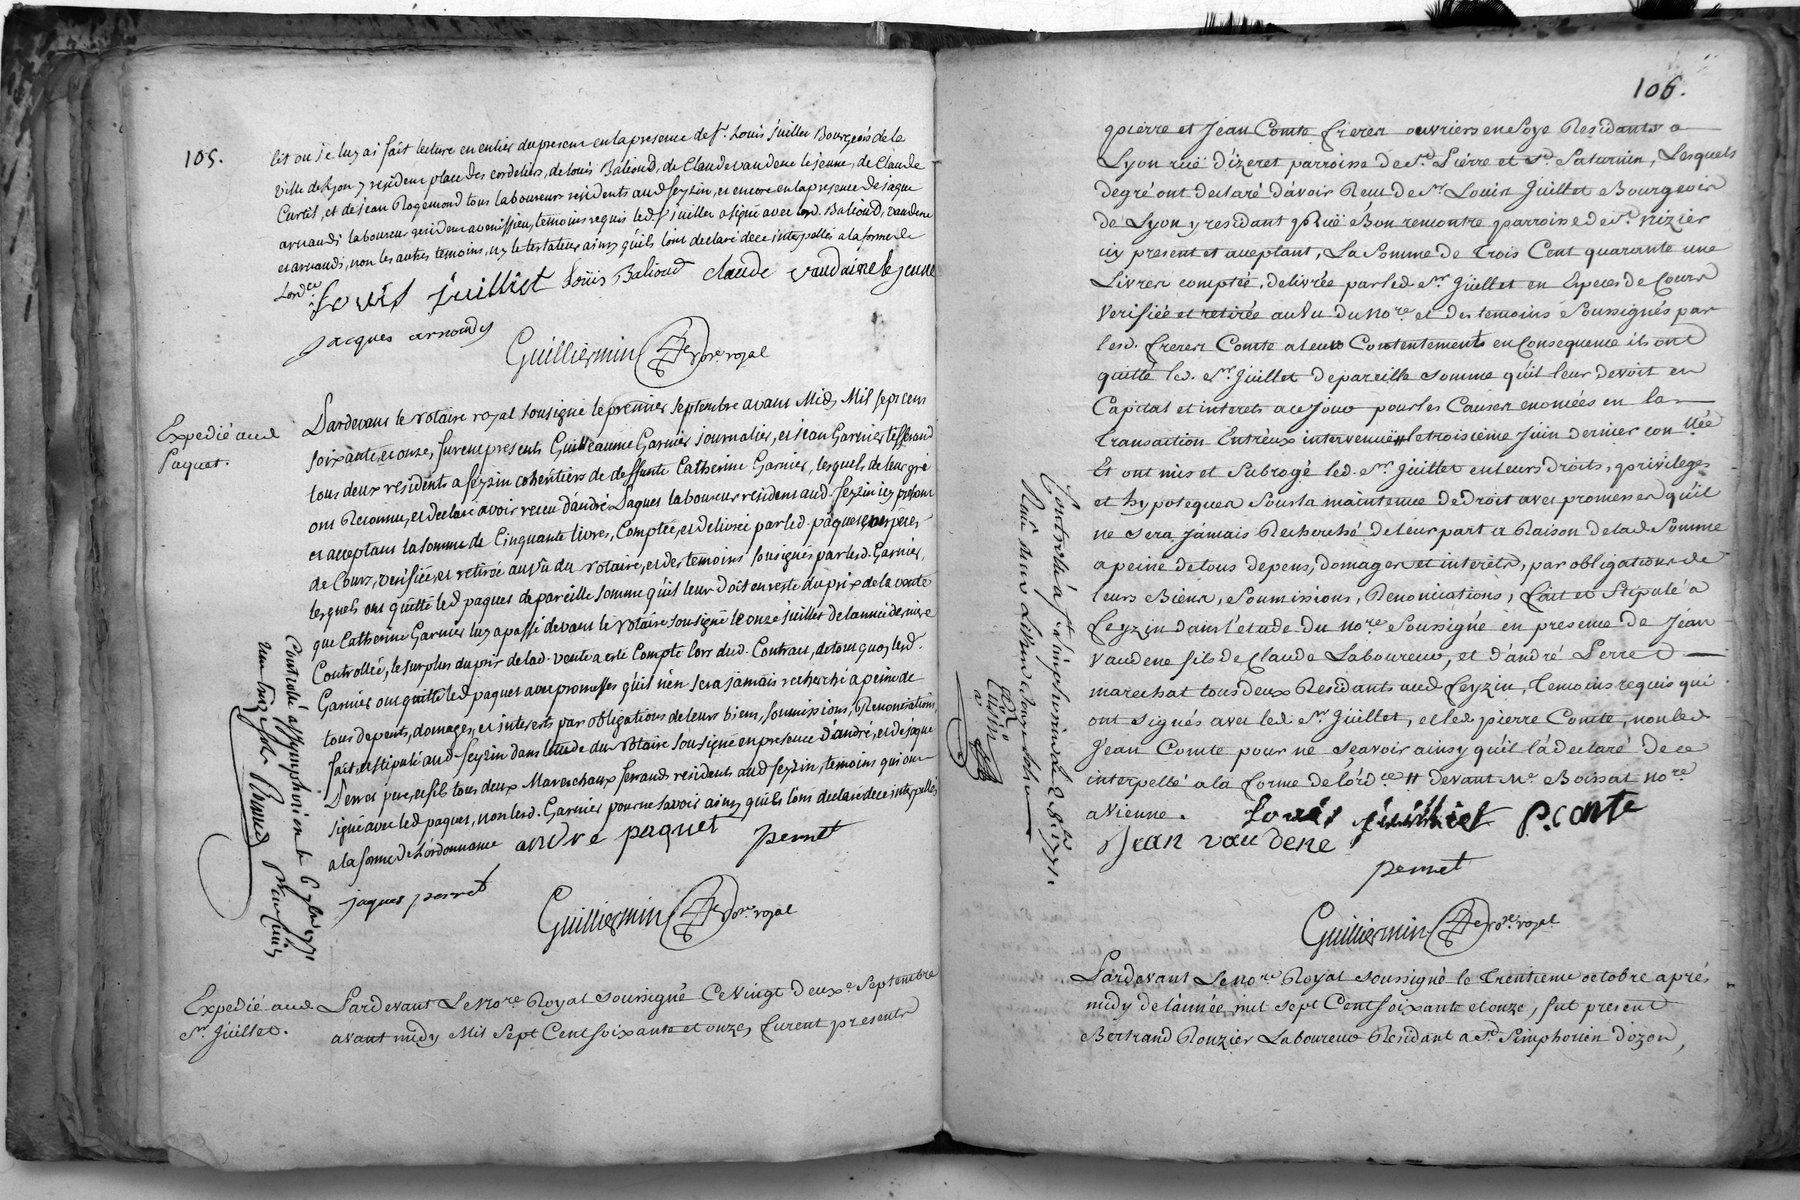 105.
lit ou je luy ai fait lecture en entier du present en la presence de sr. Louis juillet Bourgeois de la
ville de Lyon y resident place des cordeliers, de louis Balioud, de Claude vaudene le jeune, de Claude
Curtil, et de jean Rogemond tous laboureurs residents aud feyzin, et encore en la presence de jaque
arnaud laboureur resident a venissieu, temoins requis led sr juillet a signé avec lesd. Balioud, vaudene
et arnaud, non les autres temoins, ny le testateur ainsy qu'ils l'ont declaré de ce interpellés a la forme de
Lordce
Louis juilliet Louis Balioud claude vaudaine le jeune
jacques arnaud
Guilliermin nore. royal
Expedié aud
Paquet.
Pardevant le Notaire royal sousigné le premier septembre avant Midy Mil sept cent
soixante et onze, furent presents Guilleaume Garnier journalier, et jean Garnier
tous deux residents a feyzin cohéritiers de deffunte Catherine Garnier, lesquels de leur gré
ont Reconnu, et declaré avoir receu d'andré Paquet laboureur resident aud. feyzin icy present
et acceptant la somme de Cinquante livres, Comptée, et delivrée par led. paquet en espèces
de Cours, verifiée, et retirée au vû du Notaire, et des temoins sousignés par lesd. Garnier,
lesquels ont quitté led paquet de pareille somme qu'il leur doit en reste du prix de la vente
que Catherine Garnier luy a passé devant le Notaire sousigné le onze juillet de l'année derniere
Controllée, le surplus du prix de lad. vente a esté Compté lors dud. Contract, de tout quoy lesd.
Garnier ont quitté led paquet avec promesses qu'il n'en sera jamais recherché a peine de
tous depents, domages, et interests par obligations de leurs biens, soumissions, Renonciations,
fait, et stipulé aud feyzin dans l'etude du Notaire sousigné en presence d'andré, et de jaque
Perret pere, et fils tous deux Mareschaux ferrands residents aud feyzin, temoins qui ont
signé avec led paquet, non lesd. Garnier pour ne savoir ainsy qu'ils l'ont declaré de ce interpellés
a la forme de l'ordonnance andre paquet perret
jaques perret
Guilliermin nore. royal
Controlé a st simphorien le 6 7bre 1771
Expedié aud
Sr Juillet.
Pardevant Le Nore Royal soussigné Ce vingt deuxe Septembre
avant midy Mil Sept Cent soixante et onze, furent presents
106.
pierre et Jean Comte freres ouvriers en Soye Residants a
Lyon ruë dizeret parroisse de St. Pierre et St. Saturnin, Lesquels
de gré ont declaré d'avoir Reçu de Sr Louis Juillet Bourgeois
de Lyon y residant ruë Bon rencontre parroise de St. Nizier
icy present et acceptant, La Somme de Trois Cent quarante une
Livres comptée, delivrée par led. Sr Juillet en Especes de Cours
Verifiée et retirée au Vu du Nore. et des temoins Soussignés par
lesd. freres Comte a leurs Contentements en Consequence ils ont
quitté led. Sr. Juillet de pareille somme qu'il leur devoit en
Capital et interets a ce Jour pour les Causes enoncées en la
Transaction Entr'eux intervenuë le troisieme Juin dernier con llée
Et ont mis et Subrogé led. Sr. Juillet en leurs droits, privileges
et hypoteques Sous la maintenue de droit avec promesses qu'il
ne sera Jamais Recherché de leur part a Raison de lad Somme
a peine de tous depens, domages et interets, par obligations de
leurs Biens, Soumissions, Renonciations, fait et Stipulé a
feyzin dans l'etude du Nore. Soussigné en presence de Jean
Vaudene fils de Claude Laboureur, et d'andré Perret
marechal tous deux Residants aud feyzin, Temoins requis qui
ont signés avec led Sr Juillet, et led pierre Comte, non led
Jean Comte pour ne Scavoir ainsy qu'il l'a declaré de ce
interpellé a la forme de l'ordce # devant Me Boissat nore
a Vienne. Louis juilliet P. conte
Jean vaudene
perret
Guilliermin nore. royal
Controllé a st Simphorien le 28 7bre 1771.
Pardevant Le Nore Royal soussigné le Trentieme octobre aprés
midy de l'année mil sept Cent soixante et onze, fut present
Bertrand Ronzier Laboureur Residant a St. Simphorien d'ozon,